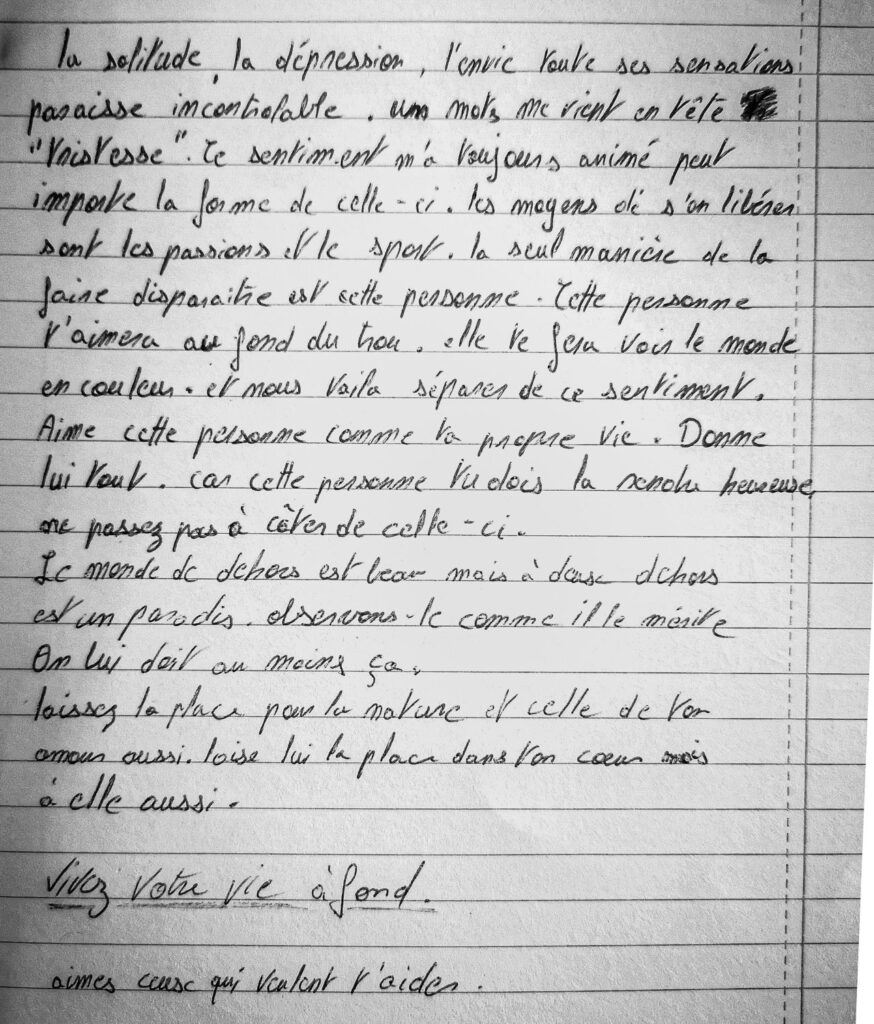 la solitude, la dépression, l'envie toute ses sensations
paraisse incontrolable. un mots me vient en tête
"tristesse". Ce sentiment m'a toujours animé peut
importe la forme de celle-ci. les moyens de s'en libérer
sont les passions et le sport. la seul manière de la
faire disparaitre est cette personne. Cette personne
t'aimera au fond du trou. elle te fera voir le monde
en couleur. et nous voila séparer de ce sentiment.
Aime cette personne comme ta propre vie. Donne
lui tout. car cette personne tu dois la rendre heureuse
ne passez pas à côter de celle-ci.
Le monde de dehors est beau mais à deux dehors
est un paradis. observons-le comme il le mérite
On lui doit au moins ça.
laissez la place pour la nature et celle de ton
amour aussi. laise lui la place dans ton cœur mais
à elle aussi.
Vivez votre vie à fond.
aimes ceux qui veulent t'aider.